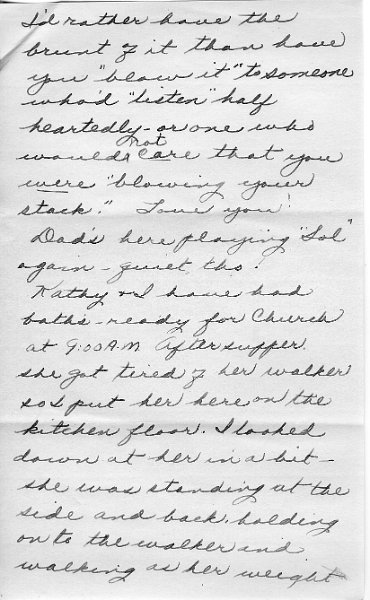 I'd rather have the
brunt of it than have
you "blow it" to someone
who'd "listen" half
heartedly - or one who
would not care that you
were "blowing your
stack." Love you!
Dad's here playing "Sol"
again - quiet tho!
Kathy & I have had
baths - ready for Church
at 9:00 A.M. After supper
she got tired of her walker
so I put her here on the
kitchen floor. I looked
down at her in a bit -
she was standing at the
side and back, holding
on to the walker and
walking as her weight